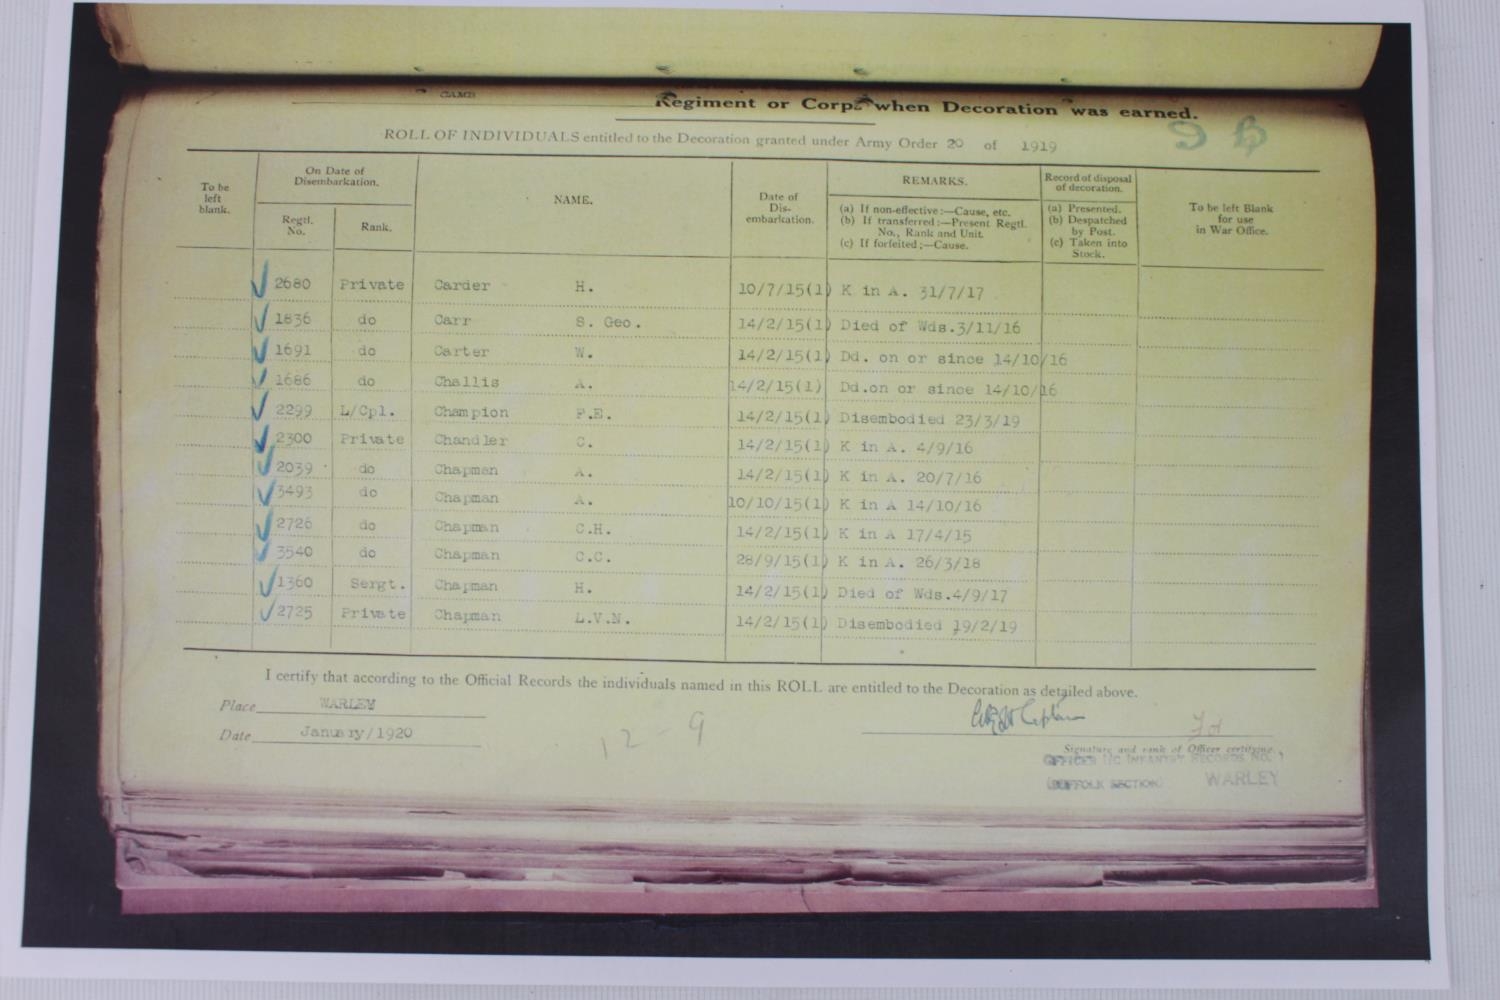 CAMB
Regiment or Corps when Decoration was earned.
ROLL OF INDIVIDUALS entitled to the Decoration granted under Army Order 20 of 1919
To be left blank.
On Date of Disembarkation.
Regtl. No.
Rank.
NAME.
Date of Dis-embarkation.
REMARKS.
(a) If non-effective:—Cause, etc.
(b) If transferred:—Present Regtl. No., Rank and Unit.
(c) If forfeited;—Cause.
Record of disposal of decoration.
(a) Presented.
(b) Despatched by Post.
(c) Taken into Stock.
To be left Blank for use in War Office.
2680 Private Carder H. 10/7/15(1) K in A. 31/7/17
1836 do Carr S. Geo. 14/2/15(1) Died of Wds.3/11/16
1691 do Carter W. 14/2/15(1) Dd. on or since 14/10/16
1686 do Challis A. 14/2/15(1) Dd.on or since 14/10/16
2299 L/Cpl. Champion F.E. 14/2/15(1) Disembodied 23/3/19
2300 Private Chandler C. 14/2/15(1) K in A. 4/9/16
2039 do Chapman A. 14/2/15(1) K in A. 20/7/16
3493 do Chapman A. 10/10/15(1) K in A 14/10/16
2726 do Chapman C.H. 14/2/15(1) K in A 17/4/15
3540 do Chapman C.C. 28/9/15(1) K in A. 26/3/18
1360 Sergt. Chapman H. 14/2/15(1) Died of Wds.4/9/17
2725 Private Chapman L.V.N. 14/2/15(1) Disembodied 19/2/19
I certify that according to the Official Records the individuals named in this ROLL are entitled to the Decoration as detailed above.
Place WARLEY
Date January/1920
12 - 9
Signature and rank of Officer certifying.
OFFICER I/C INFANTRY RECORDS NO. 1
(SUFFOLK SECTION) WARLEY